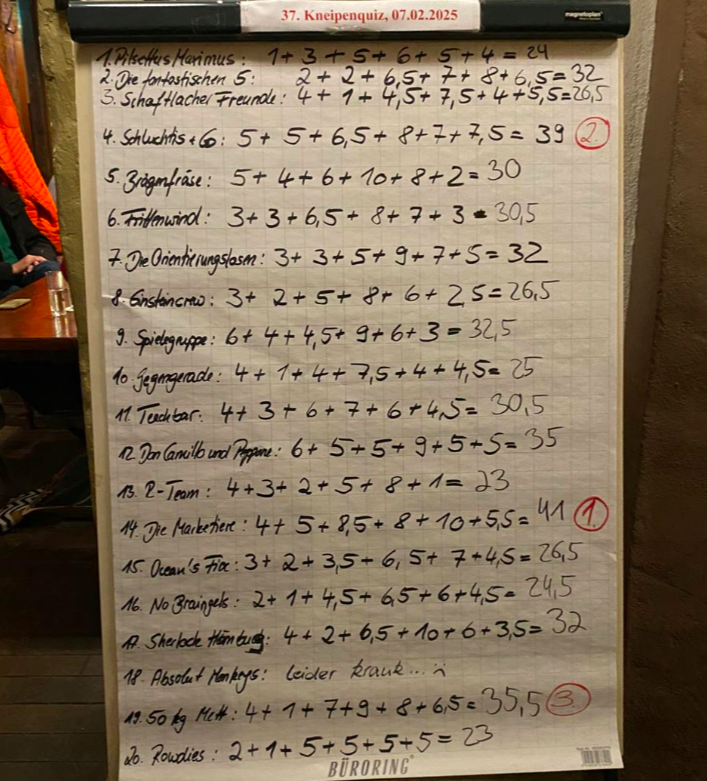 37. Kneipenquiz, 07.02.2025
magnetoplan
1. Pilsettus Maximus: 1+3+5+6+5+4 = 24
2. Die fantastischen 5: 2+2+6,5+7+8+6,5=32
3. Schaftlacher Freunde: 4+1+4,5+7,5+4+5,5=26,5
4. Schluchtis + 6: 5+5+6,5+8+7+7,5= 39 2.
5. Brägenfräse: 5+4+6+10+8+2= 30
6. Frittenwind: 3+3+6,5+8+7+3= 30,5
7. Die Orientierungslosen: 3+3+5+9+7+5=32
8. Einsteincrew: 3+2+5+8+6+2,5=26,5
9. Spielegruppe: 6+4+4,5+9+6+3= 32,5
10. Gegengerade: 4+1+4+7,5+4+4,5= 25
11. Teechbar: 4+3+6+7+6+4,5= 30,5
12. Don Camillo und Peppone: 6+5+5+9+5+5= 35
13. R-Team: 4+3+2+5+8+1= 23
14. Die Marketiere: 4+5+8,5+8+10+5,5= 41 1.
15. Ocean's Fix: 3+2+3,5+6,5+7+4,5= 26,5
16. No Braingels: 2+1+4,5+6,5+6+4,5= 24,5
17. Sherlock Hamburg: 4+2+6,5+10+6+3,5= 32
18. Absolut Monkeys: leider krank...
19. 50 kg Mett: 4+1+7+9+8+6,5= 35,5 3.
20. Rowdies: 2+1+5+5+5+5= 23
BÜRORING